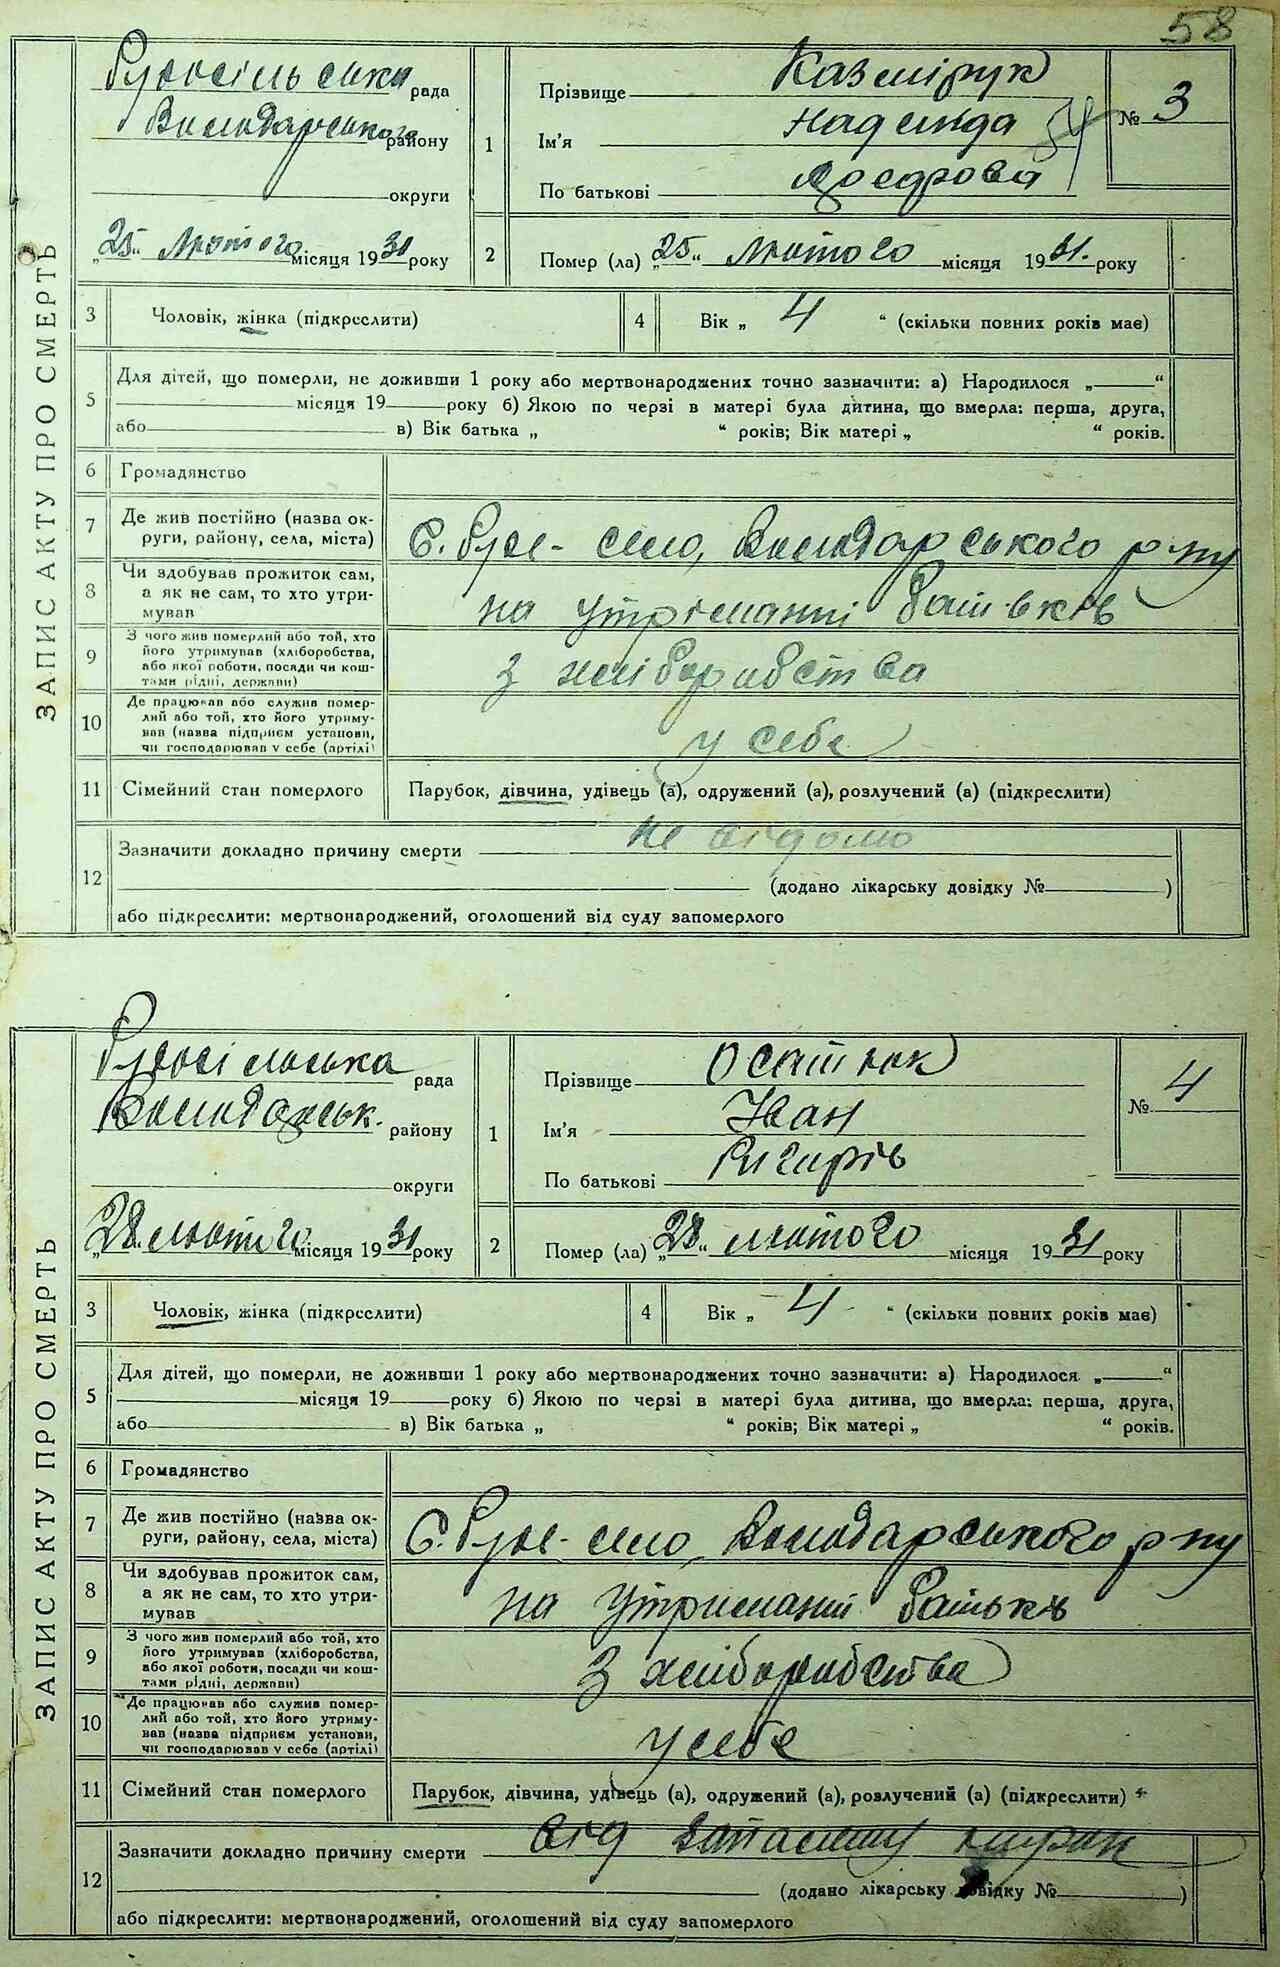 58
Рудосільська рада
Володарського району
округи
„25“ Лютого місяця 1931 року
1
Прізвище Казмірук
Ім'я Надежда
По батькові
№ 3
2
Помер (ла) „25“ Лютого місяця 1931. року
ЗАПИС АКТУ ПРО СМЕРТЬ
3
Чоловік, жінка (підкреслити)
4
Вік „ 4 “ (скільки повних років має)
5
Для дітей, що померли, не доживши 1 року або мертвонароджених точно зазначити: а) Народилося „ “
місяця 19 року б) Якою по черзі в матері була дитина, що вмерла: перша, друга,
або в) Вік батька „ “ років; Вік матері „ “ років.
6
Громадянство
7
Де жив постійно (назва ок-
руги, району, села, міста)
С. Руде-село, Володарського р-ну
8
Чи здобував прожиток сам,
а як не сам, то хто утри-
мував
на утріманні батьків
9
З чого жив померлий або той, хто
його утримував (хліборобства,
або якої роботи, посади чи кош-
тами рідні, держави)
з хліборобства
10
Де працював або служив помер-
лий або той, хто його утриму-
вав (назва підприєм установи,
чи господарював у себе (артілі)
у себе
11
Сімейний стан померлого
Парубок, дівчина, удівець (а), одружений (а), розлучений (а) (підкреслити)
12
Зазначити докладно причину смерти не відомо
(додано лікарську довідку № )
або підкреслити: мертвонароджений, оголошений від суду запомерлого
Рудосільська рада
Володарськ. району
округи
„28“ лютого місяця 1931 року
1
Прізвище Осатюк
Ім'я Іван
По батькові
№ 4
2
Помер (ла) „28“ лютого місяця 1931 року
ЗАПИС АКТУ ПРО СМЕРТЬ
3
Чоловік, жінка (підкреслити)
4
Вік „ 4 “ (скільки повних років має)
5
Для дітей, що померли, не доживши 1 року або мертвонароджених точно зазначити: а) Народилося „ “
місяця 19 року б) Якою по черзі в матері була дитина, що вмерла: перша, друга,
або в) Вік батька „ “ років; Вік матері „ “ років.
6
Громадянство
7
Де жив постійно (назва ок-
руги, району, села, міста)
С. Руде-село, Володарського р-ну
8
Чи здобував прожиток сам,
а як не сам, то хто утри-
мував
на утриманні батьків
9
З чого жив померлий або той, хто
його утримував (хліборобства,
або якої роботи, посади чи кош-
тами рідні, держави)
з хліборобства
10
Де працював або служив помер-
лий або той, хто його утриму-
вав (назва підприєм установи,
чи господарював у себе (артілі)
у себе
11
Сімейний стан померлого
Парубок, дівчина, удівець (а), одружений (а), розлучений (а) (підкреслити)
12
Зазначити докладно причину смерти від
(додано лікарську довідку № )
або підкреслити: мертвонароджений, оголошений від суду запомерлого